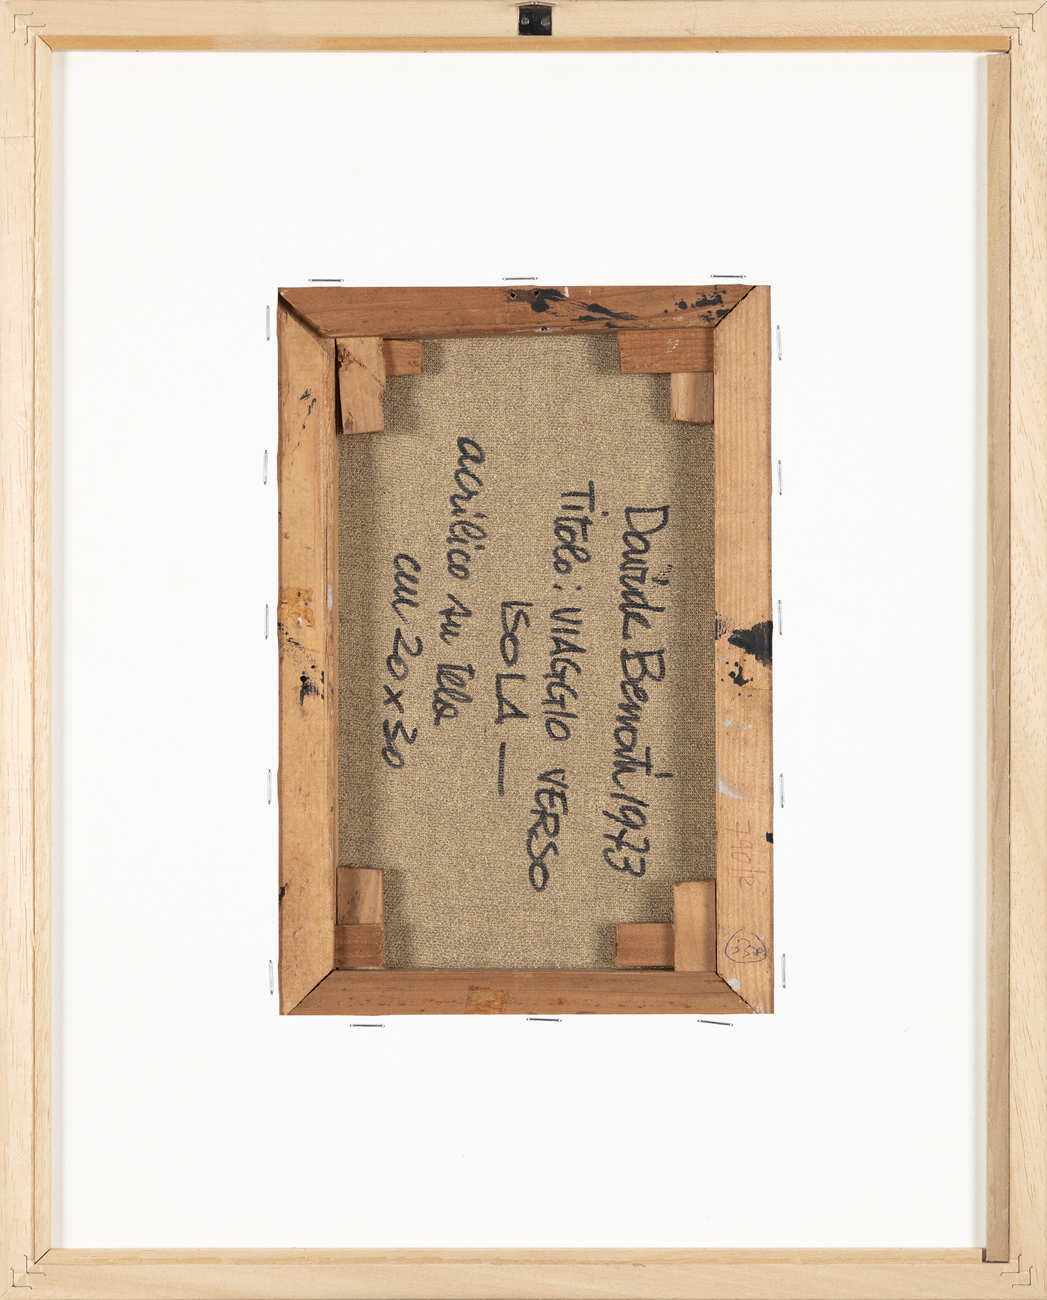 Davide Benati 1973
Titolo: VIAGGIO VERSO
ISOLA —
acrilico su tela
cm 20 x 30
790/2
558